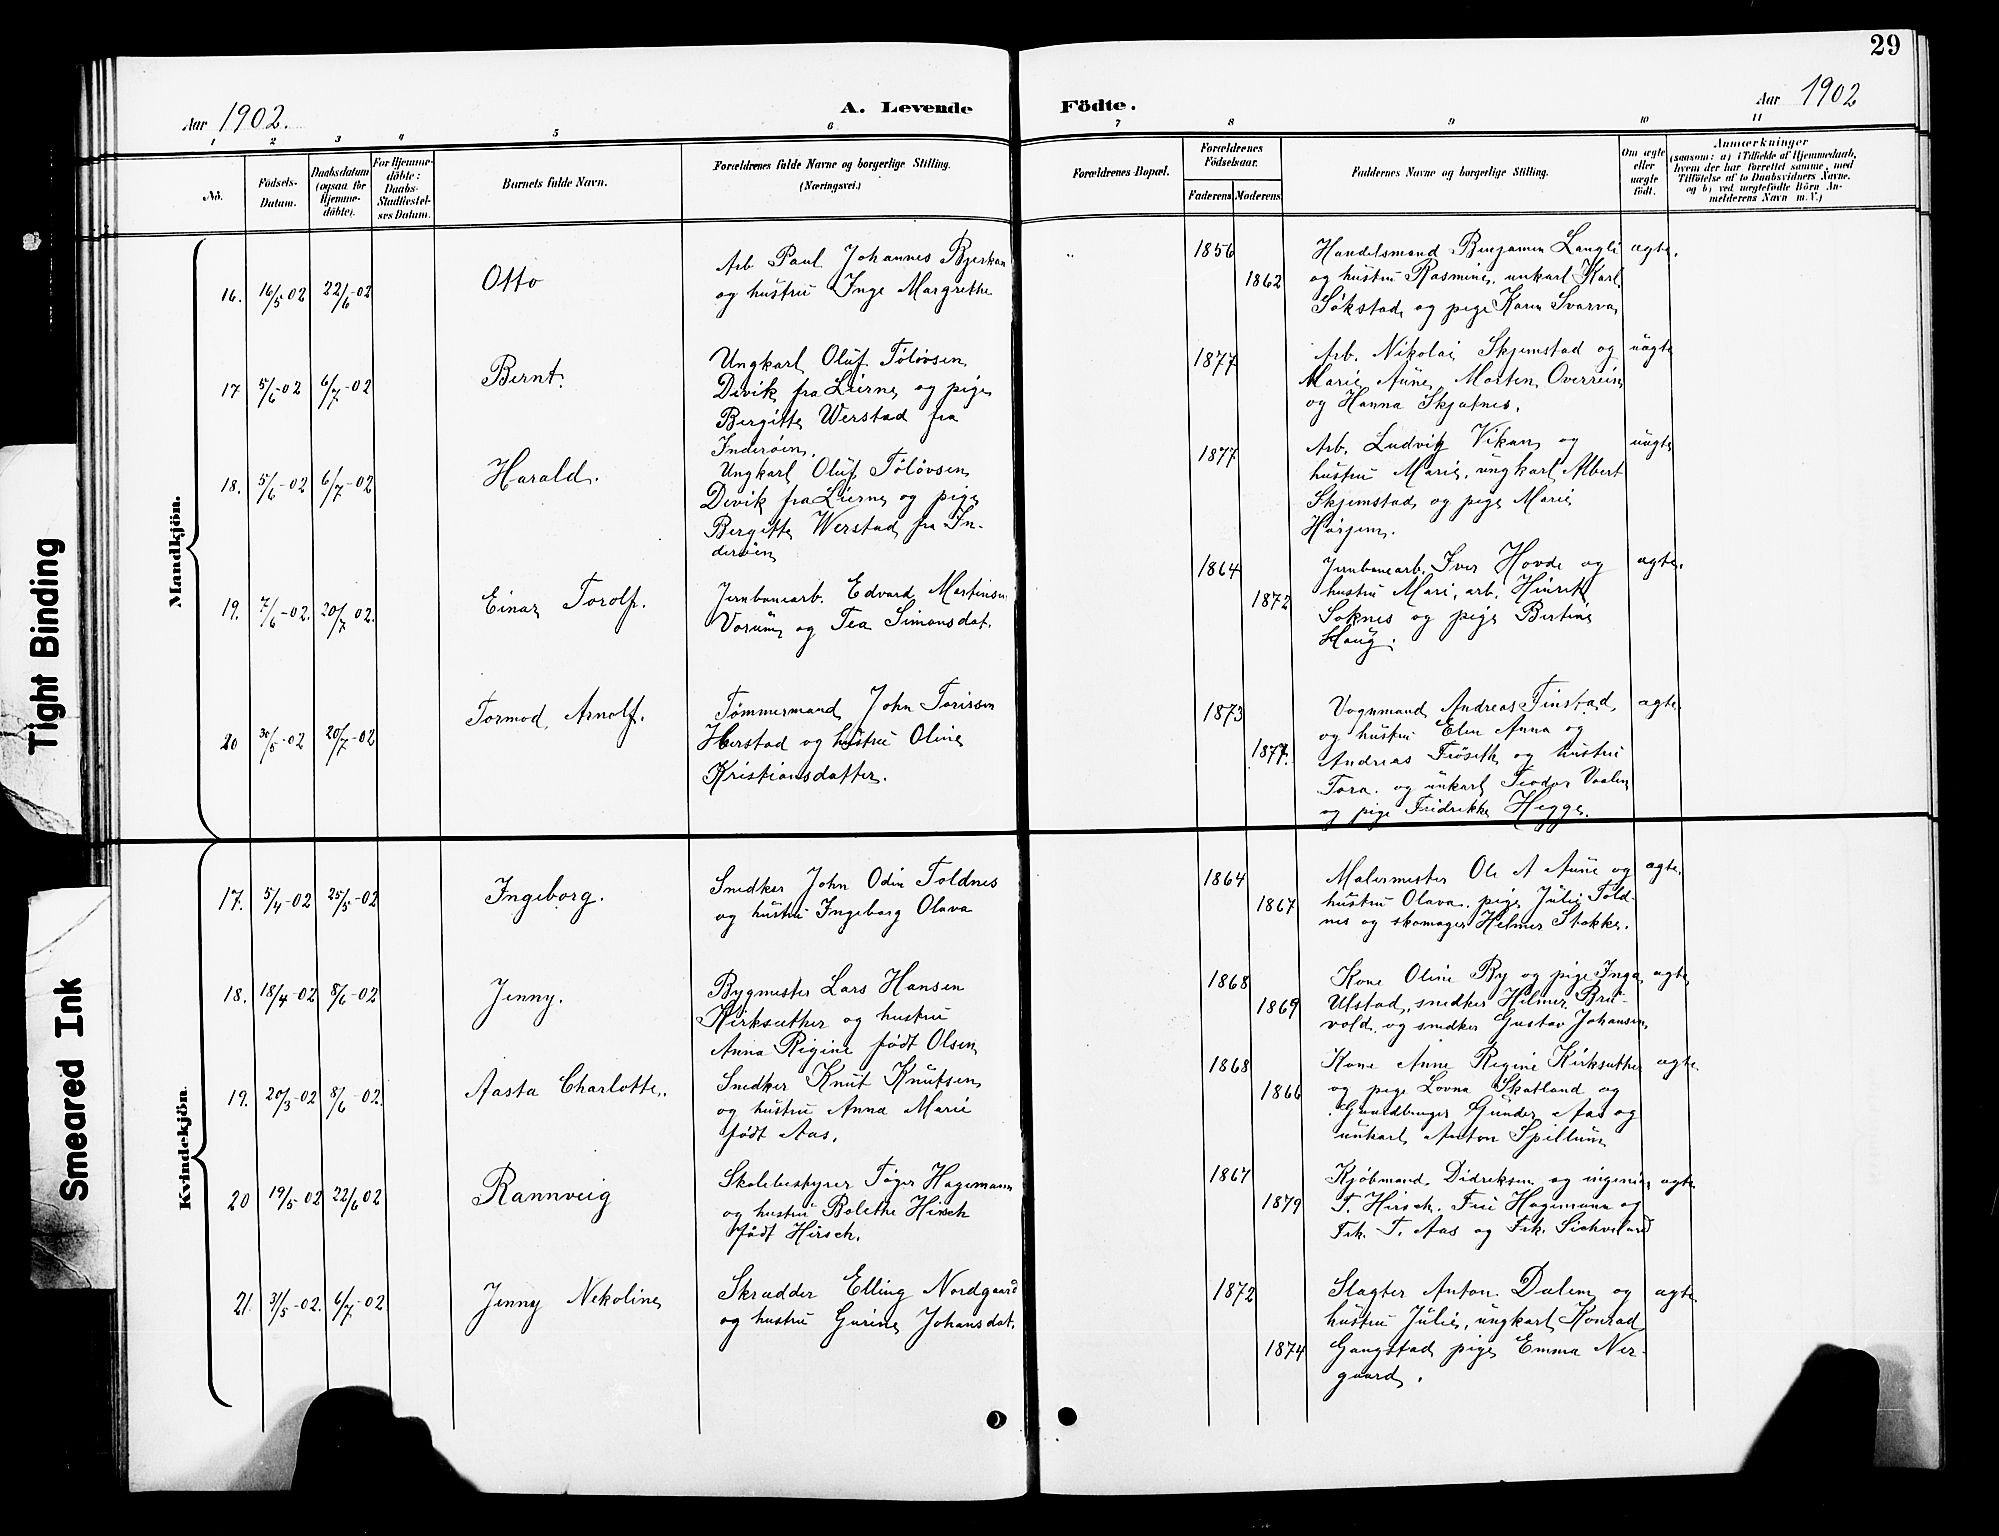 29
Aar 1902.
A. Levende Födte.
Aar 1902
1 2 3 4 5 6 7 8 9 10 11
No.
Födsels-Datum.
Daabsdatum (ogsaa for Hjemmedöbte).
For Hjemmedöbte: Daabs-Stadfæstelses Datum.
Barnets fulde Navn.
Forældrenes fulde Navne og borgerlige Stilling. (Næringsvei.)
Forældrenes Bopæl.
Forældrenes Födselsaar.
Faderens Moderens
Faddernes Navne og borgerlige Stilling.
Om ægte eller uægte födt.
Anmærkninger
(saasom: a) i Tilfælde af Hjemmedaab, hvem der har forrettet samme, med Tilföielse af to Daabsvidners Navne, og b) ved uægtefödte Börn Anmelderens Navn m. V.)
Mandkjön.
16. 16/5-02 22/6-02 Otto
Arb Paul Johannes Bjerkan
og hustru Inge Margrethe
1856
1862
Handelsmand Benjamin Langli
og hustru Rasmine, unkarl Karl
Sökstad og pige Karen Svarva
ægte.
17 5/6-02 6/7-02 Bernt.
Ungkarl Oluf Tölövsen
Devik fra Lierne og pige
Bergitte Werstad fra
Inderöen.
1877
Arb. Nikolai Skjemstad og
Marie Aune, Morten Overrein
og Hanna Skjatnes.
uægte
18. 5/6-02 6/7-02 Harald.
Ungkarl Oluf Tölövsen
Devik fra Lierne og pige
Bergitte Werstad fra In-
deröen
1877
Arb. Ludvig Vikan og
hustru Marie, ungkarl Albert
Skjemstad og pige Marie
Hörjem.
uægte
19. 7/6-02. 20/7 02. Einar Torolf.
Jernbanearb. Edvard Martinsen
Vorum og Tea Simonsdat.
1864
1872
Jernbanearb. Iver Hovde og
hustru Mari, arb. Hinrik
Soknes og pige Bertine
Haug.
ægte.
20 30/5-02 20/7-02 Tormod Arnolf.
Tömmermand John Torissen
Herstad og hustru Oline
Kristiansdatter.
1873
1877.
Vognmand Andreas Tinstad
og hustru Elen Anna og
Andreas Fröseth og hustru
Tora. og unkarl Teodor Vaalen
og pige Fridrikke Hegge.
ægte
Kvindekjön.
17. 5/4-02 25/5-02 Ingeborg.
Snedker John Odin Toldnes
og hustru Ingeborg Olava
1864
1867
Malermester Ole A Aune og
hustru Olava, pige Julie Told-
nes og skomager Helmer Stokke.
ægte.
18. 18/4-02 8/6-02 Jenny.
Bygmester Lars Hansen
Kirksæther og hustru
Anna Regine født Olsen
1868
1869
Kone Oline By og pige Inga
Ulstad, snedker Hilmer Brü-
vold. og snedker Gustav Johansen
ægte
19. 20/3-02 8/6-02. Aasta Charlotte.
Snedker Knut Knutsen
og hustru Anna Marie
født Aas.
1868
1866
Kone Anne Regine Kirksæther
og pige Lovna Skatland og
Gaardbruger Gunder Aas og
unkarl Anton Spillum
ægte.
20 19/5-02 22/6 02 Rannveig
Skolebestyrer Töger Hagemann
og hustru Bolethe Hirsch
født Hirsch.
1867
1879
Kjöbmand Didreksen og ingeniør
T. Hirsch. Frü Hagemann og
Frk. T. Aas og Frk.
ægte
21. 31/5-02. 6/7-02 Jenny Nekoline
Skrædder Elling Nordgaard
og hustru Gurine Johansdat.
1872
1874
Slagter Anton Dalem og
hustru Julie, ungkarl Konrad
Gangstad pige Emma Ner-
gaard.
ægte
Tight Binding
Smeared Ink